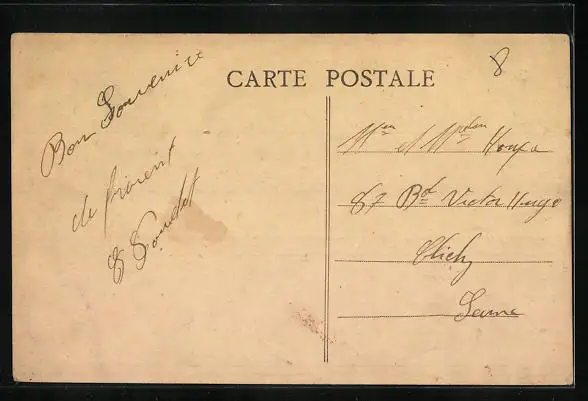 CARTE POSTALE
8
Bon Souvenir
de
Mr et Mme
87 Bd Victor Hugo
Clichy
Seine